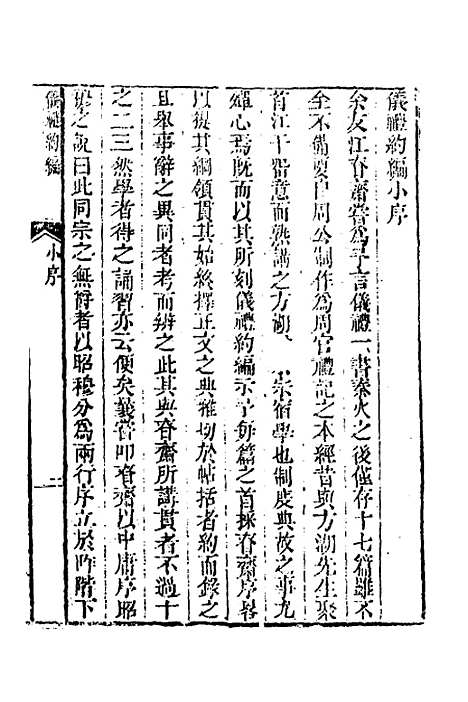 儀禮約編小序
余友江眷齋嘗爲予言儀禮一書秦火之後僅存十七篇雖不
全不備要皆周公制作爲周官禮記之本經昔與方湖先生聚
首江干嘗意而熟講之方湖宿學也制度典故之事尤
殫心焉旣而以其所刻儀禮約編示予每篇之首採眷齋序畧
以從其綱領貫其始終擇正文之典雅切於帖括者約而錄之
且舉事辭之異同者考而辨之此其與眷齋所講貫者不過十
之二三然學者得之誦習亦云便矣嘗叩眷齋以中庸序昭
穆之說曰此同宗之無爵者以昭穆分爲兩行序立於阼階下
儀禮約編
小序
一